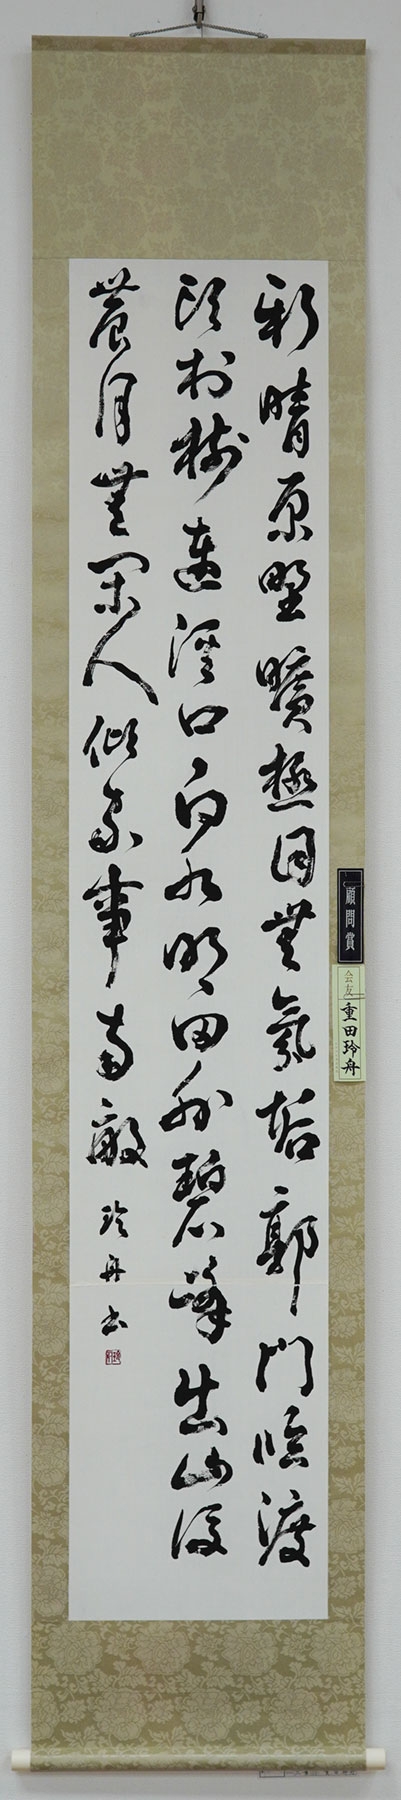 新晴原野曠極目無氛垢郭門臨渡
頭村樹連溪口白水明田外碧峰出山後
農月無閑人傾家事南畝 玲舟書
顧問賞
会友 重田玲舟